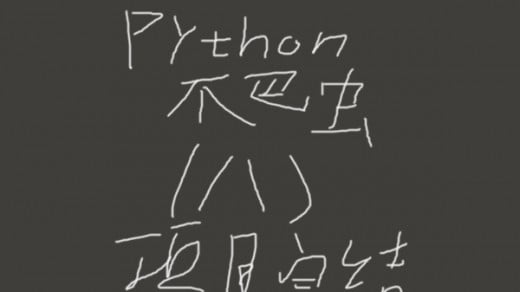 Python
不巴虫
(八)
项目总结